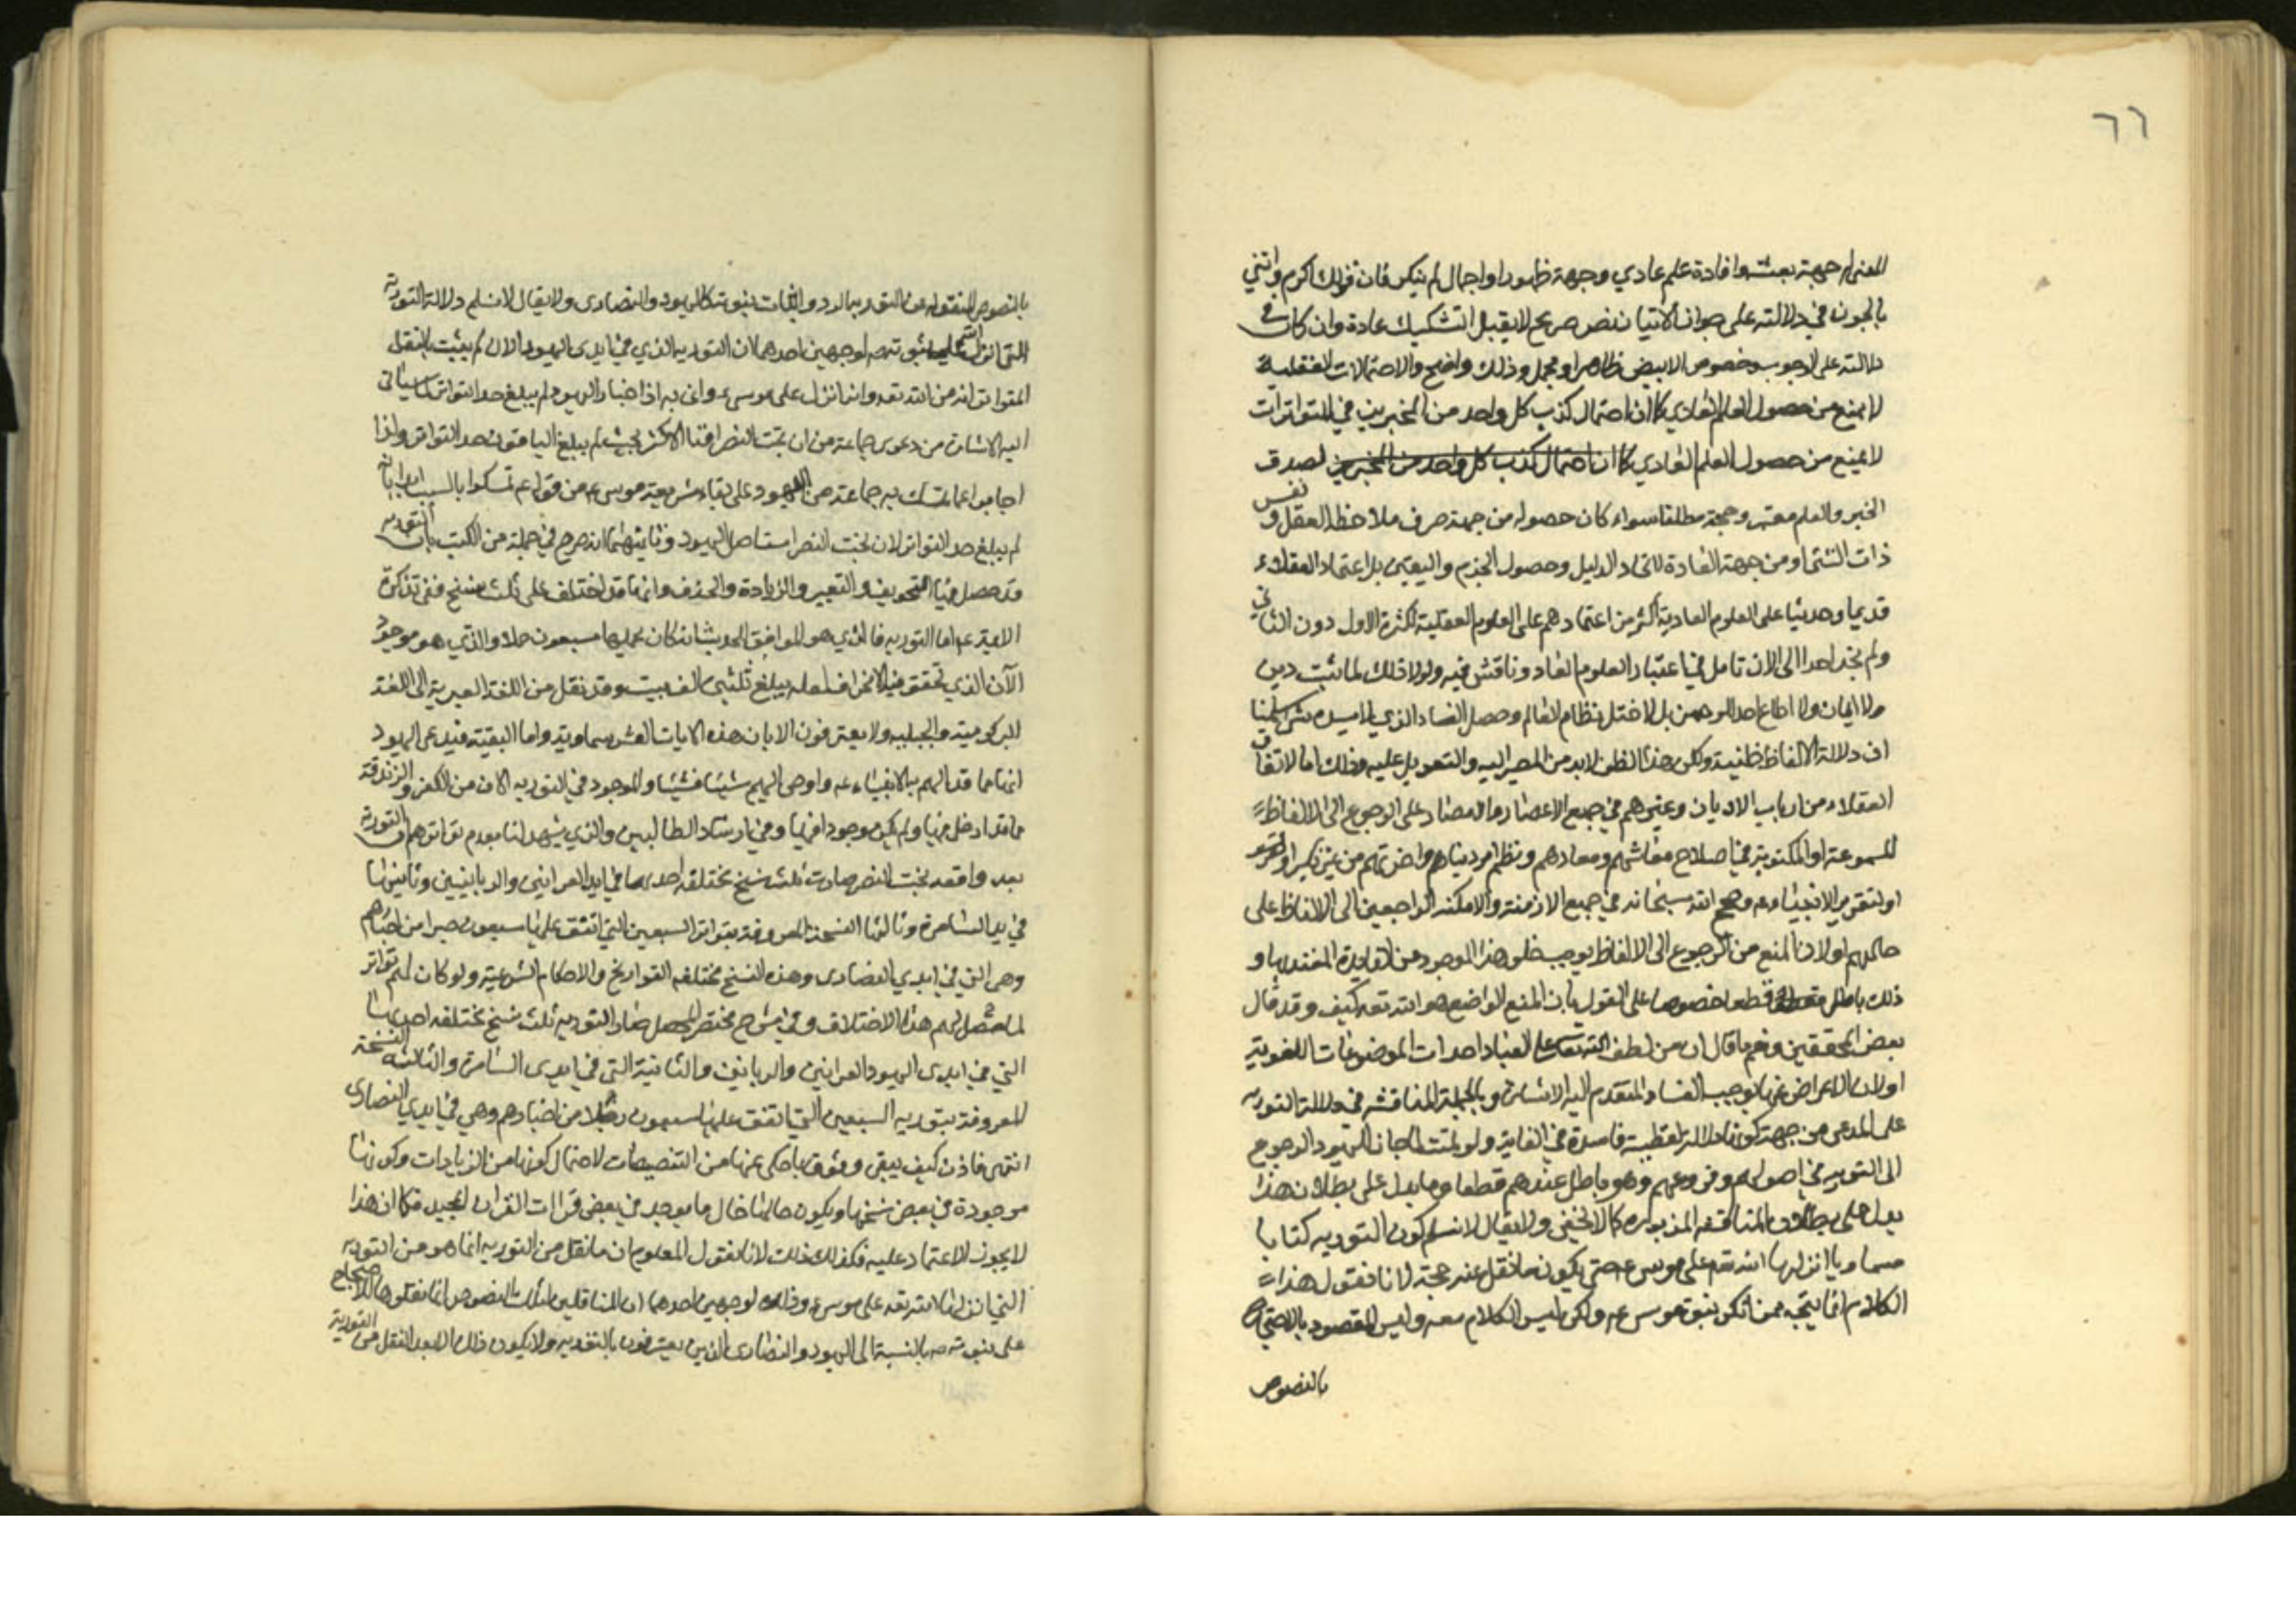 ٦٦
المعنى له جهة بعث وافادة علم عادي وجهة ظهور او اجمال لم ينكر فان قولك اكرم واتني
بالجون في دلالته على جواز الاتيان نص صريح لا يقبل التشكيك عادة وان كان في
دلالته على الوجوب وخصوص الابيض ظاهرا او مجمل وذلك واضح والاحتمالات العقلية
لا يمنع من حصول العلم العادي كما ان احتمال كذب كل واحد من المخبرين في المتواترات
لا يمنع من حصول العلم العادي كما ان احتمال كذب كل واحد من المخبرين لصدق
الخبر والعلم معتبر وحجة مطلقا سواء كان حصوله من جهة صرف ملاحظة العقل ونفس
ذات الشئ او من جهة العادة لاتحاد الدليل وحصول الجزم واليقين بل اعتماد العقلاء
قديما وحديثا على العلوم العادية اكثر من اعتمادهم على العلوم العقلية لكثرة الاول دون الثاني
ولم نجد احدا الى الان تامل في اعتبار العلوم العاد وناقش فيه ولولا ذلك لما يثبت دين
ولا ايمان ولا اطاع احد الرحمن بل لاختل نظام العالم وحصل الفساد الذي
ان دلالة الالفاظ ظنية ولكن هذا الظن لابد من المصير اليه والتعويل عليه وذلك اما لاتفاق
العقلاء من ارباب الاديان وغيرهم في جميع الاعصار والامصار على الرجوع الى الالفاظ
المسموعة او المكتوبة في اصلاح معاشهم ومعادهم ونظم امر دنياهم واخرتهم من غير نكير
او لتقرير الانبياء وحجج الله سبحانه في جميع الازمنة والامكنة الراجعين الى الالفاظ على
حالهم او لان المنع من الرجوع الى الالفاظ يوجب خلو هذا الموجود عن الفايدة المعتد بها و
ذلك باطل قطعا خصوصا على القول بان المنع الواضع هو الله تعه كيف وقد قال
بعض المحققين ونعم ما قال ان من لطف الله تعالى على العباد احداث الموضوعات اللغوية
او لان الاعراض عنها يوجب الفساد المتقدم اليه الاشارة وبالجملة المناقشة في دلالة التورية
على المدعى من جهة كونها دلالة لفظية فاسدة في الغاية ولو تمت لما جاز لليهود الرجوع
الى التورية في اصولهم وفروعهم وهو باطل عندهم قطعا وما يدل على بطلان هذا
يدل على بطلان المناقشة المذبورة كما لا يخفى ولا يقال لا نسلم كون التورية كتابا
سماويا انزلها الله تعه على موسى ع حتى يكون ما نقل عنه حجة لانا نقول هذا
الكلام انما يتجه ممن انكر نبوة موسى ع ولكن ليس الكلام معه وليس المقصود بالاحتجاج
بالنصوص
بالنصوص المنقولة عن التورية الرد والاثبات بنبوته كاليهود والنصارى ولا يقال لا نسلم دلالة التورية
التي انزلت على نبوته ص لوجهين احدهما ان التورية الذي في ايدى اليهود الان لم يثبت بالنقل
المتواتر انه من الله تعه وانه انزل على موسى ع واتى به اذ اخبار اليهود لم يبلغ حد التواتر لما سياتي
اليه الاشارة من دعوى جماعة من ان بخت النصر افنا الاكثر بحيث لم يبلغ الباقون حد التواتر ولذا
اجابوا عما تمسك به جماعة من اليهود على بقاء شريعة موسى ع من قوله ع تمسكوا بالسبت ابدا بانه
لم يبلغ حد التواتر لان بخت النصر استاصل اليهود وثانيهما انه صرح في جملة من الكتب بان التورية
قد حصل فيها التحريف والتغيير والزيادة والحذف وانها قد اختلف على ثلث نسخ ففي تذكرة
الائمة ع اما التورية فالذي هو الموافق للحديث انه كان يحملها سبعون حملا والذي هو موجود
الآن الذي تحقق فيه الانحراف لعله يبلغ ثلثي الف بيت وقد نقل من اللغة العبرية الى اللغة
ولا يعترفون الا بان هذه الايات العشر سماوية واما البقية فيدعى اليهود
انها مما قد الهم به الانبياء ع واوحى اليهم شيئا فشيئا والموجود في التورية الان من الكفر والزندقة
مما قد ادخل فيها ولم يكن موجودا فيها وفي ارشاد الطالبين والذي يشهد لنا بعدم تواترهم ان التورية
بعد واقعة بخت النصر صارت ثلث نسخ مختلفة احديها في ايدى القرائين والربانيين وثانيتها
في ايد السامرة وثالثها النسخة المعروفة بتوراة السبعين التي اتفق عليها سبعون حبرا من احبارهم
وهي التي في ايدي النصارى وهذه النسخ مختلفة التواريخ والاحكام الشرعية ولو كان لهم تواتر
لما حصل لهم هذا الاختلاف وفي شرح مختصر صار التورية ثلث نسخ مختلفة احديها
التي في ايدى اليهود القرائين والربانين والثانية التي في ايدى السامرة والثالثة النسخة
المعروفة بتورية السبعين التي اتفق عليها سبعون رجلا من احبارهم وهي في ايدي النصارى
انتهى فاذن كيف يبقى وثوق بما حكى عنها من التنصيصات لاحتمال كونها من الزيادات وكونها
موجودة في بعض نسخها ويكون حالها حال ما يوجد في بعض قرآات القران المجيد فكما ان هذا
لا يجوز الاعتماد عليه فكذلك ذلك لانا نقول المعلوم ان ما نقل من التورية انما هو من التورية
التي انزلها الله تعه على موسى ع وذلك لوجهين احدهما ان الناقلين لتلك النصوص انما نقلوها للاحتجاج
على نبوته ص بالنسبة الى اليهود والنصارى الذين يعترفون بالتورية ولا يكون ذلك الا بعد النقل من التورية